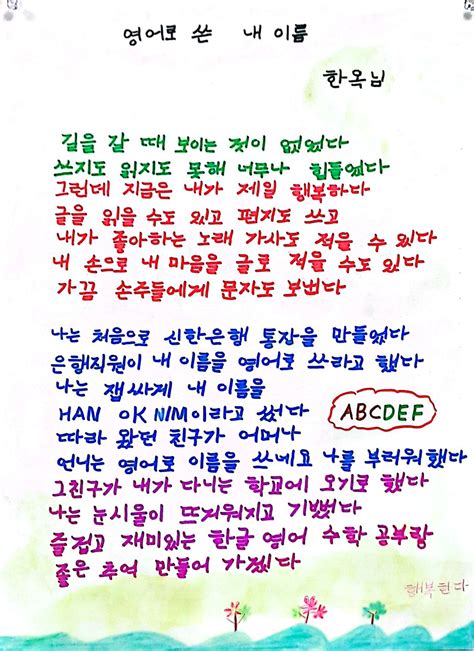 영어로 쓴 내 이름
한옥님
길을 갈 때 보이는 것이 없었다
쓰지도 읽지도 못해 너무나 힘들었다
그런데 지금은 내가 제일 행복하다
글을 읽을 수도 있고 편지도 쓰고
내가 좋아하는 노래 가사도 적을 수 있다
내 손으로 내 마음을 글로 적을 수도 있다
가끔 손주들에게 문자도 보낸다
나는 처음으로 신한은행 통장을 만들었다
은행직원이 내 이름을 영어로 쓰라고 했다
나는 잽싸게 내 이름을
HAN OK NIM이라고 썼다
ABCDEF
따라 왔던 친구가 어머나
언니는 영어로 이름을 쓰네요 나를 부러워했다
그친구가 내가 다니는 학교에 오기로 했다
나는 눈시울이 뜨거워지고 기뻤다
즐겁고 재미있는 한글 영어 수학 공부랑
좋은 추억 만들어 가겠다
행복한다